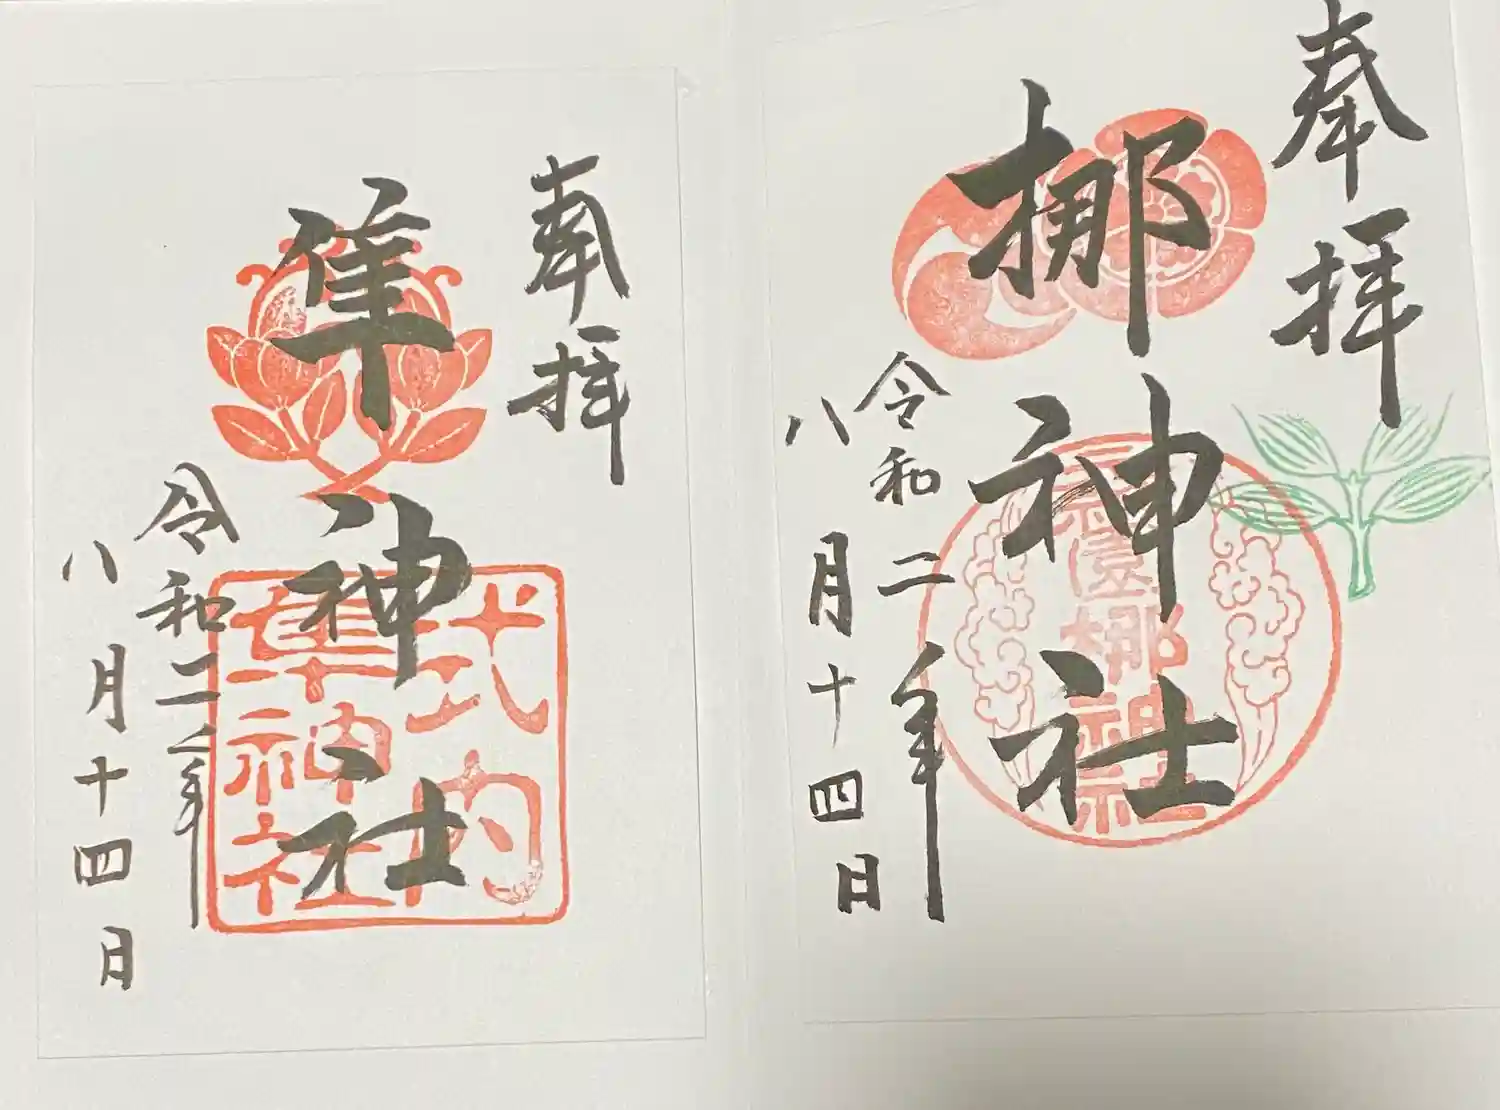 奉拝
梛神社
元祇園梛神社
令和二年
八月十四日
奉拝
隼神社
式内
隼神社
令和二年
八月十四日